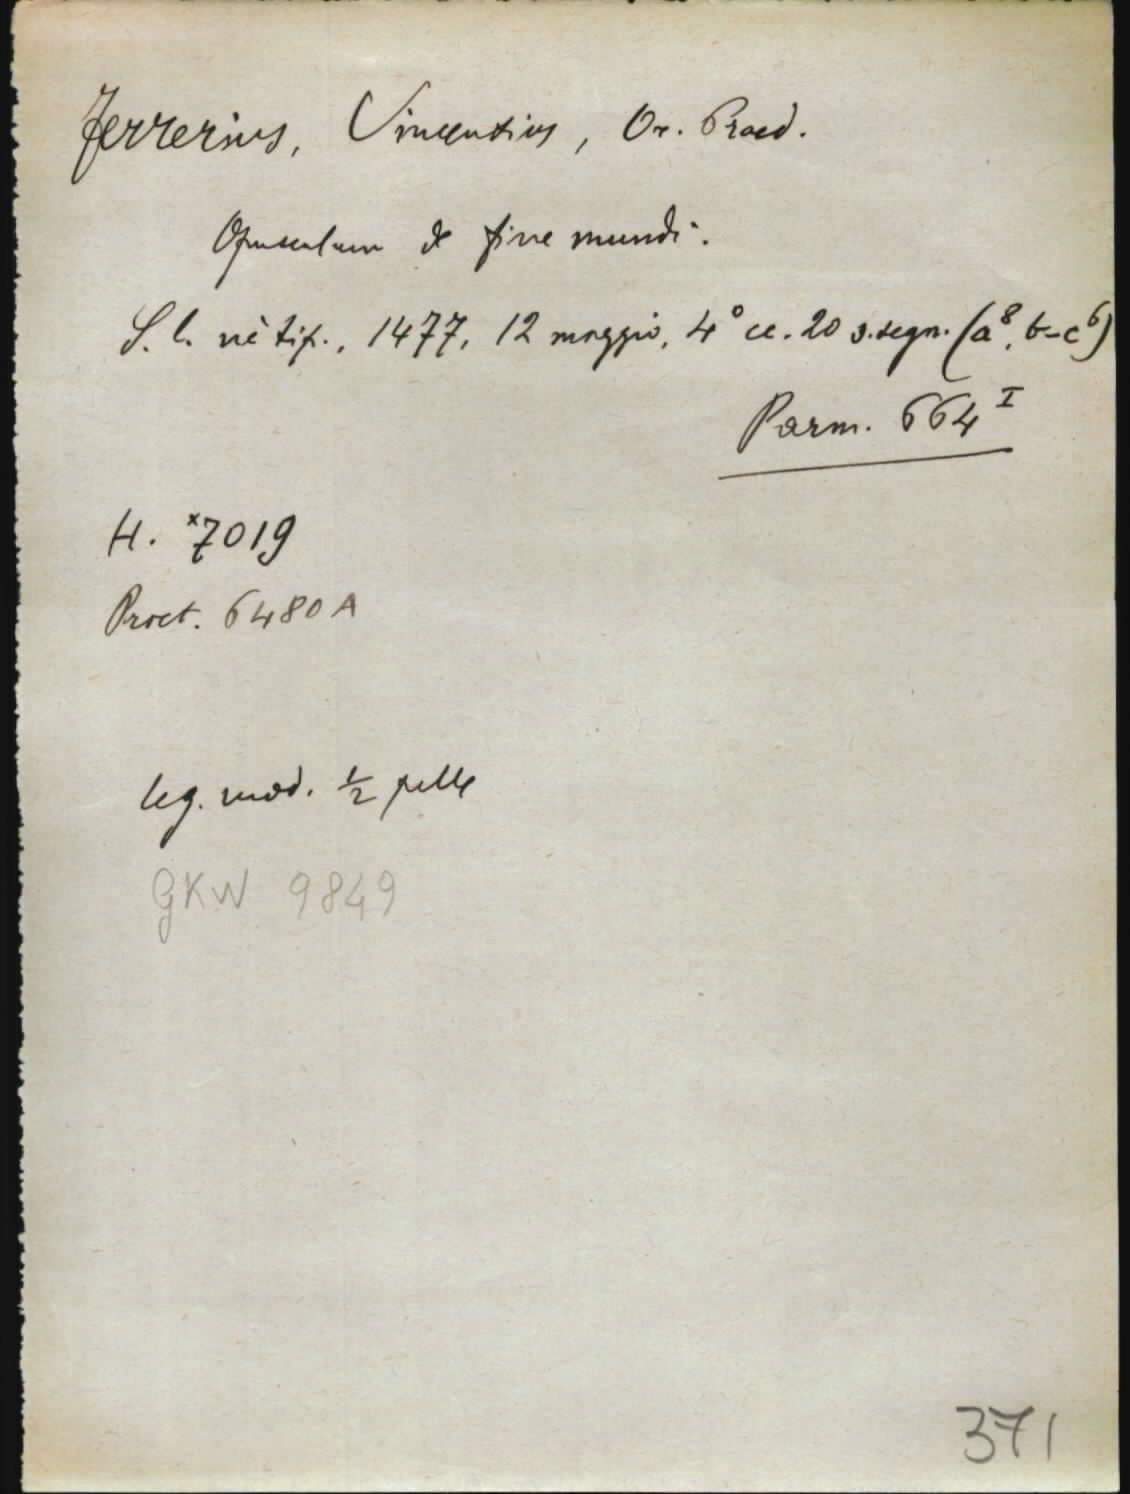 Ferrerius, Vincentius, Or. Praed.
Opusculum de fine mundi.
S. l. nè tip., 1477, 12 maggio, 4° cc. 20 s. segn. (a⁸, b-c⁶)
Parm. 664 I
H. *7019
Proct. 6480A
leg. mod. ½ pelle
GKW 9849
371